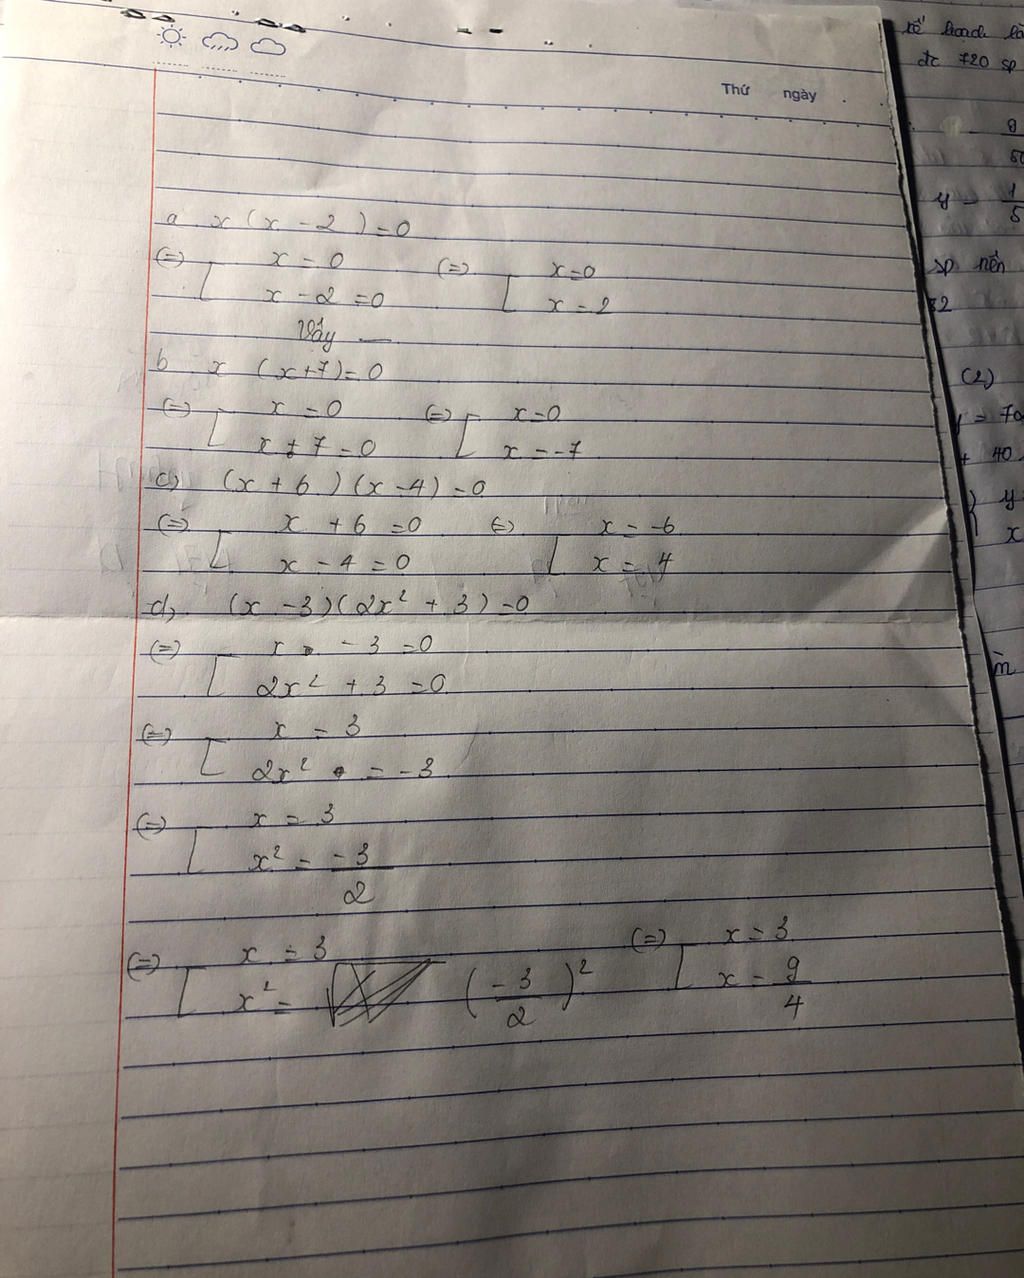 Thứ ngày
a x (x - 2) = 0
(=) [ x = 0 (=) [ x = 0
x - 2 = 0 x = 2
Vậy —
b x (x+7) = 0
(=) [ x = 0 (=) [ x = 0
x + 7 = 0 x = -7
c) (x + 6) (x - 4) = 0
(=) [ x + 6 = 0 (=) [ x = -6
x - 4 = 0 x = 4
d, (x - 3) (2x² + 3) = 0
(=) [ x - 3 = 0
2x² + 3 = 0
(=) [ x = 3
2x² = -3
(=) [ x = 3
x² = -3/2
(=) [ x = 3 (=) [ x = 3
x² = (-3/2)² x = 9/4
đc 720 sp
y = 1/5
sp nên
32
(2)
= 70
+ 40
y
x